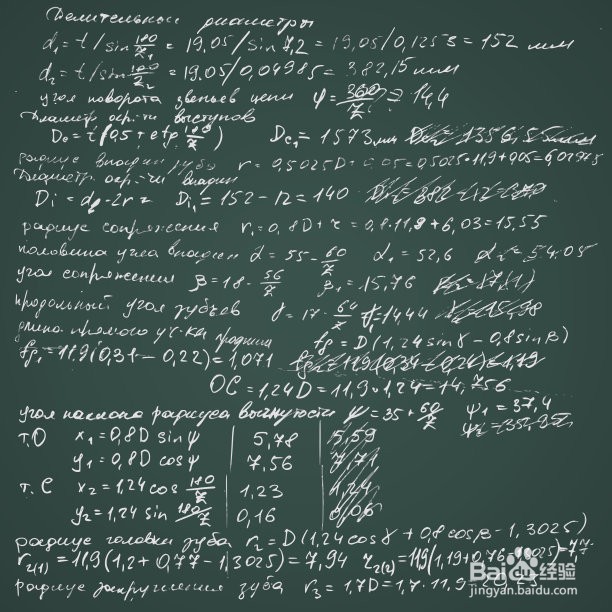 Делительные диаметры
d₁ = t/sin 180/z₁ = 19,05/sin 7,2 = 19,05/0,1253 = 152 мм
d₂ = t/sin 180/z₂ = 19.05/0,04985 = 382,15 мм
угол поворота звеньев цепи φ = 360/z = 14,4
Диаметр окр-ти выступов
De = t(0,5 + ctg 180/z) De₁ = 1573 мм
радиус впадин зуба r = 0,5025D + 0,05 = 0,5025·11,9+0,05 = 6,02975
Диаметр окр-ти впадин
Di = d₁-2r = Di₁ = 152-12 = 140
радиус сопряжения r₁ = 0,8D+r = 0,8·11,9+6,03 = 15,55
половина угла впадин α = 55- 60/z α₁ = 52,6 α₂ = 54.05
угол сопряжения β = 18- 56/z β₁ = 15,76
продольный угол зубьев γ = 17- 64/z γ₁ = 14,44
длина прямого уч-ка профиля fg = D(1,24sinγ - 0,8sinβ)
fg₁ = 11,9(0,31 - 0,22) = 1,071
OC = 1,24D = 11,9·1,24 = 14,756
угол наклона радиуса вогнутости ψ = 35 + 60/z ψ₁ = 37,4
т.О x₁ = 0,8D sin ψ 5,78 5,59
y₁ = 0,8D cos ψ 7,56 7,71
т.С x₂ = 1,24 cos 180/z 1,23 1,24
y₂ = 1,24 sin 180/z 0,16 0,06
радиус головки зуба r₂ = D(1,24cosγ + 0,8cosβ - 1,3025)
r₂₍₁₎ = 11,9(1,2 + 0,77 - 1,3025) = 7,94 r₂₍₂₎ = 11,9(1,19+0,76
радиус закругления зуба r₃ = 1,7D = 1,7·11,9
Baidu 经验
jingyan.baidu.com